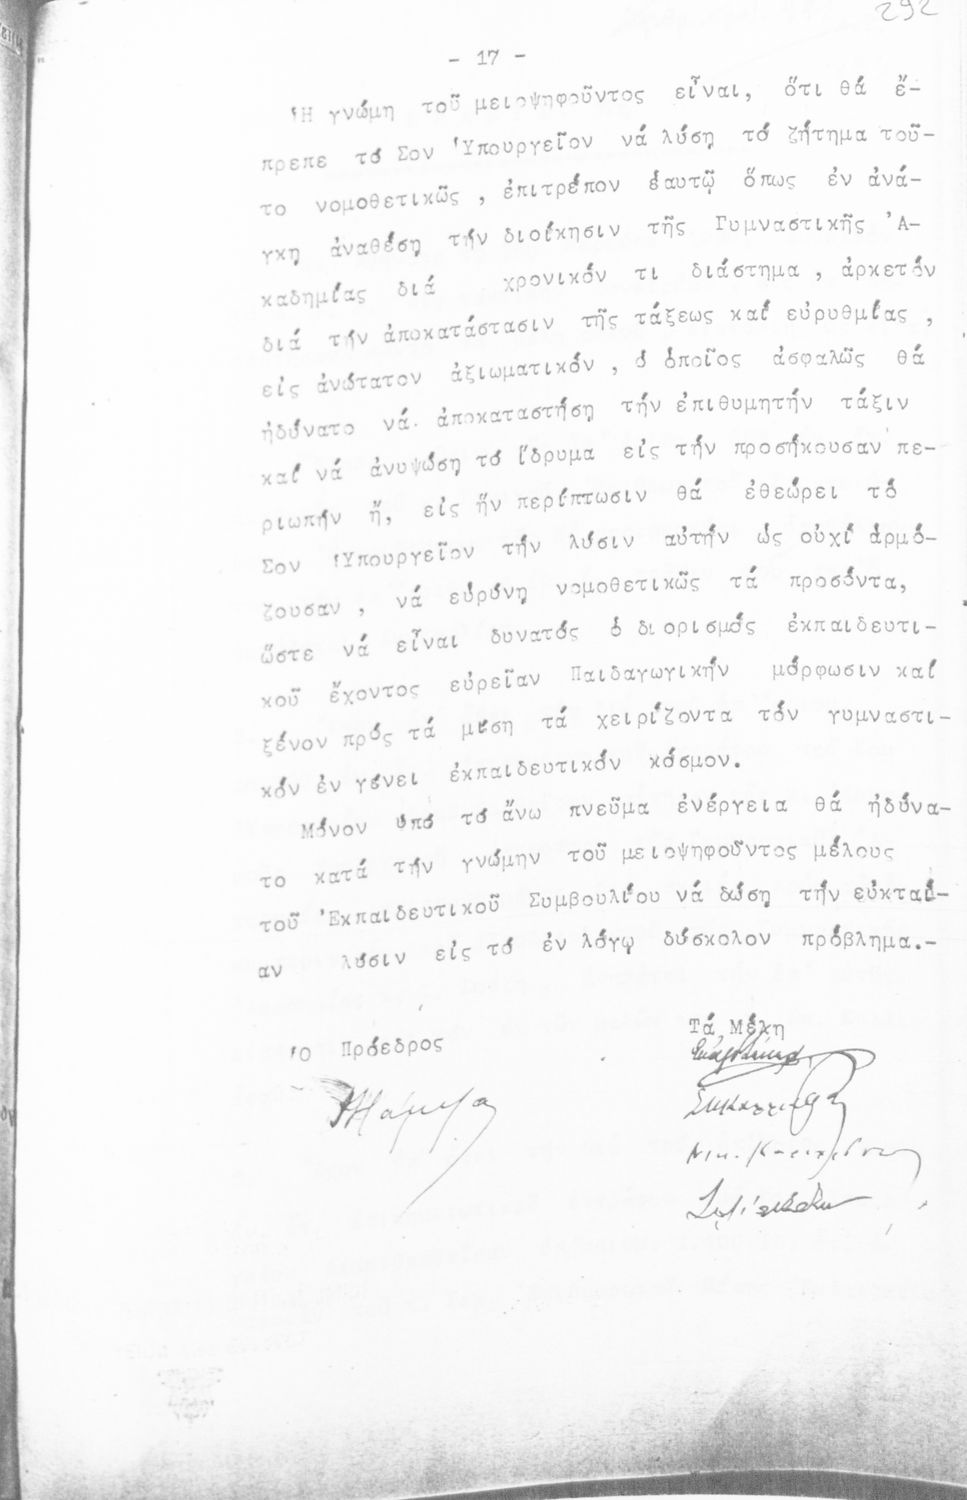 292
- 17 -
Ἡ γνώμη τοῦ μειοψηφοῦντος εἶναι, ὅτι θά ἔ-
πρεπε τό Σον Ὑπουργεῖον νά λύσῃ τό ζήτημα τοῦ-
το νομοθετικῶς, ἐπιτρέπον ἑαυτῷ ὅπως ἐν ἀνά-
γκῃ ἀναθέσῃ τήν διοίκησιν τῆς Γυμναστικῆς Ἀ-
καδημίας διά χρονικόν τι διάστημα, ἀρκετόν
διά τήν ἀποκατάστασιν τῆς τάξεως καί εὐρυθμίας,
εἰς ἀνώτατον ἀξιωματικόν, ὁ ὁποῖος ἀσφαλῶς θά
ἠδύνατο νά ἀποκαταστήσῃ τήν ἐπιθυμητήν τάξιν
καί νά ἀνυψώσῃ τό ἵδρυμα εἰς τήν προσήκουσαν πε-
ριωπήν ἤ, εἰς ἥν περίπτωσιν θά ἐθεώρει τό
Σον Ὑπουργεῖον τήν λύσιν αὐτήν ὡς οὐχί ἁρμό-
ζουσαν, νά εὐρύνῃ νομοθετικῶς τά προσόντα,
ὥστε νά εἶναι δυνατός ὁ διορισμός ἐκπαιδευτι-
κοῦ ἔχοντος εὐρεῖαν Παιδαγωγικήν μόρφωσιν καί
ξένον πρός τά μίση τά χειρίζοντα τόν γυμναστι-
κόν ἐν γένει ἐκπαιδευτικόν κόσμον.
Μόνον ὑπό τό ἄνω πνεῦμα ἐνέργεια θά ἠδύνα-
το κατά τήν γνώμην τοῦ μειοψηφοῦντος μέλους
τοῦ Ἐκπαιδευτικοῦ Συμβουλίου νά δώσῃ τήν εὐκταί-
αν λύσιν εἰς τό ἐν λόγῳ δύσκολον πρόβλημα.-
Ὁ Πρόεδρος
Τά Μέλη